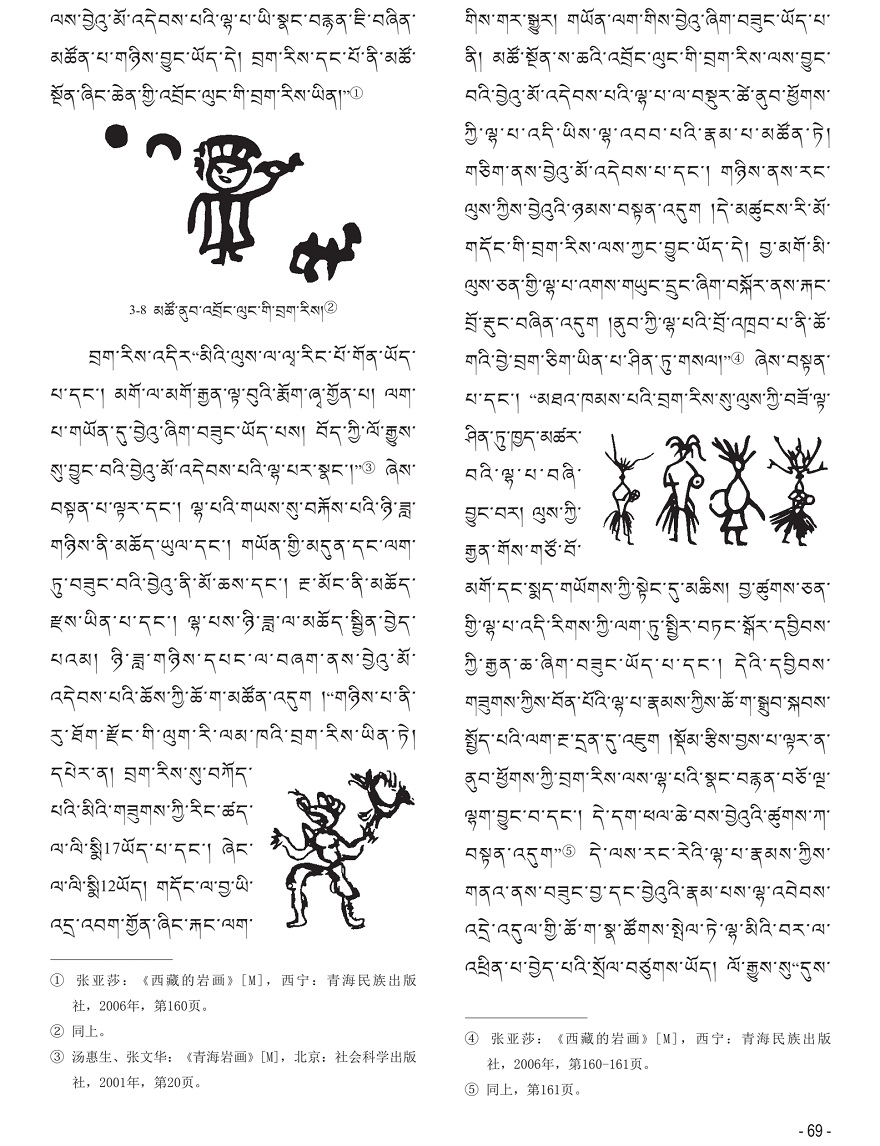 ལས་བྱེའུ་མོ་འདེབས་པའི་ལྷ་པ་ཡི་སྣང་བརྙན་ཇི་བཞིན་
མཚོན་པ་གཉིས་བྱུང་ཡོད་དེ། བྲག་རིས་དང་པོ་ནི་མཚོ་
སྔོན་ཞིང་ཆེན་གྱི་འབྲོང་ལུང་གི་བྲག་རིས་ཡིན།”①
3-8 མཚོ་ནུབ་འབྲོང་ལུང་གི་བྲག་རིས།②
བྲག་རིས་འདིར“མིའི་ལུས་ལ་ལྭ་རིང་པོ་གོན་ཡོད་
པ་དང་། མགོ་ལ་མགོ་རྒྱན་ལྟ་བུའི་རྨོག་ཞྭ་གྱོན་པ། ལག་
པ་གཡོན་དུ་བྱེའུ་ཞིག་བཟུང་ཡོད་པས། བོད་ཀྱི་ལོ་རྒྱུས་
སུ་བྱུང་བའི་བྱེའུ་མོ་འདེབས་པའི་ལྷ་པར་སྣང་།”③ ཞེས་
བསྟན་པ་ལྟར་དང་། ལྷ་པའི་གཡས་སུ་བརྐོས་པའི་ཉི་ཟླ་
གཉིས་ནི་མཆོད་ཡུལ་དང་། གཡོན་གྱི་མདུན་དང་ལག་
ཏུ་བཟུང་བའི་བྱེའུ་ནི་མོ་ཆས་དང་། རྔ་མོང་ནི་མཆོད་
རྫས་ཡིན་པ་དང་། ལྷ་པས་ཉི་ཟླ་ལ་མཆོད་སྦྱིན་བྱེད་
པའམ། ཉི་ཟླ་གཉིས་དཔང་ལ་བཞག་ནས་བྱེའུ་མོ་
འདེབས་པའི་ཆོས་ཀྱི་ཆོ་ག་མཚོན་འདུག །“གཉིས་པ་ནི་
རུ་ཐོག་རྫོང་གི་ལུག་རི་ལམ་ཁའི་བྲག་རིས་ཡིན་ཏེ།
དཔེར་ན། བྲག་རིས་སུ་བཀོད་
པའི་མིའི་གཟུགས་ཀྱི་རིང་ཚད་
ལ་ལི་སྨི17ཡོད་པ་དང་། ཞེང་
ལ་ལི་སྨི12ཡོད། གདོང་ལ་བྱ་ཡི་
འདྲ་འབག་གྱོན་ཞིང་རྐང་ལག་
① 张亚莎：《西藏的岩画》[M]，西宁：青海民族出版
社，2006年，第160页。
② 同上。
③ 汤惠生、张文华：《青海岩画》[M]，北京：社会科学出版
社，2001年，第20页。
གིས་གར་སྒྱུར། གཡོན་ལག་གིས་བྱེའུ་ཞིག་བཟུང་ཡོད་པ་
ནི། མཚོ་སྔོན་ས་ཆའི་འབྲོང་ལུང་གི་བྲག་རིས་ལས་བྱུང་
བའི་བྱེའུ་མོ་འདེབས་པའི་ལྷ་པ་ལ་བསྡུར་ཚེ་ནུབ་ཕྱོགས་
ཀྱི་ལྷ་པ་འདི་ཡིས་ལྷ་འབབ་པའི་རྣམ་པ་མཚོན་ཏེ།
གཅིག་ནས་བྱེའུ་མོ་འདེབས་པ་དང་། གཉིས་ནས་རང་
ལུས་ཀྱིས་བྱེའུའི་ཉམས་བསྟན་འདུག །དེ་མཚུངས་རི་མོ་
གདོང་གི་བྲག་རིས་ལས་ཀྱང་བྱུང་ཡོད་དེ། བྱ་མགོ་མི་
ལུས་ཅན་གྱི་ལྷ་པ་འགས་གཡུང་དྲུང་ཞིག་བསྐོར་ནས་རྐང་
བྲོ་རྡུང་བཞིན་འདུག །ནུབ་ཀྱི་ལྷ་པའི་བྲོ་འཁྲབ་པ་ནི་ཆོ་
གའི་བྱེ་བྲག་ཅིག་ཡིན་པ་ཤིན་ཏུ་གསལ།”④ ཞེས་བསྟན་
པ་དང་། “མཐའ་ཁམས་པའི་བྲག་རིས་སུ་ལུས་ཀྱི་བཟོ་ལྟ་
ཤིན་ཏུ་ཁྱད་མཚར་
བའི་ལྷ་པ་བཞི་
བྱུང་བར། ལུས་ཀྱི་
རྒྱན་གོས་གཙོ་བོ་
མགོ་དང་སྨད་གཡོགས་ཀྱི་སྟེང་དུ་མཆིས། བྱ་ཚུགས་ཅན་
གྱི་ལྷ་པ་འདི་རིགས་ཀྱི་ལག་ཏུ་སྤྱིར་བཏང་སྒོར་དབྱིབས་
ཀྱི་རྒྱན་ཆ་ཞིག་བཟུང་ཡོད་པ་དང་། དེའི་དབྱིབས་
གཟུགས་ཀྱིས་བོན་པོའི་ལྷ་པ་རྣམས་ཀྱིས་ཆོ་ག་སྒྲུབ་སྐབས་
སྤྱོད་པའི་ལག་རྔ་དྲན་དུ་འཇུག །སྡོམ་རྩིས་བྱས་པ་ལྟར་ན་
ནུབ་ཕྱོགས་ཀྱི་བྲག་རིས་ལས་ལྷ་པའི་སྣང་བརྙན་བཅོ་ལྔ་
ལྷག་བྱུང་བ་དང་། དེ་དག་ཕལ་ཆེ་བས་བྱེའུའི་ཚུགས་ཀ་
བསྟན་འདུག”⑤ དེ་ལས་རང་རེའི་ལྷ་པ་རྣམས་ཀྱིས་
གནའ་ནས་བཟུང་བྱ་དང་བྱེའུའི་རྣམ་པས་ལྷ་འབེབས་
འདྲེ་འདུལ་གྱི་ཆོ་ག་སྣ་ཚོགས་སྤེལ་ཏེ་ལྷ་མིའི་བར་ལ་
འཕྲིན་པ་བྱེད་པའི་སྲོལ་བཙུགས་ཡོད། ལོ་རྒྱུས་སུ“དུས་
④ 张亚莎：《西藏的岩画》[M]，西宁：青海民族出版
社，2006年，第160-161页。
⑤ 同上，第161页。
- 69 -